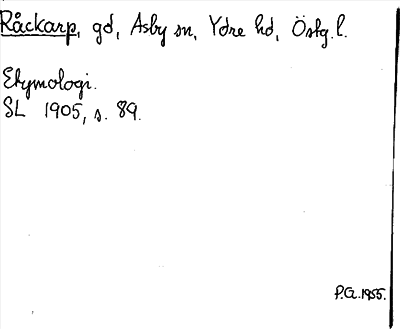 Råckarp, gd, Asby sn, Ydre hd, Östg.l.
Etymologi.
SL 1905, s. 89.
P.G. 1955.